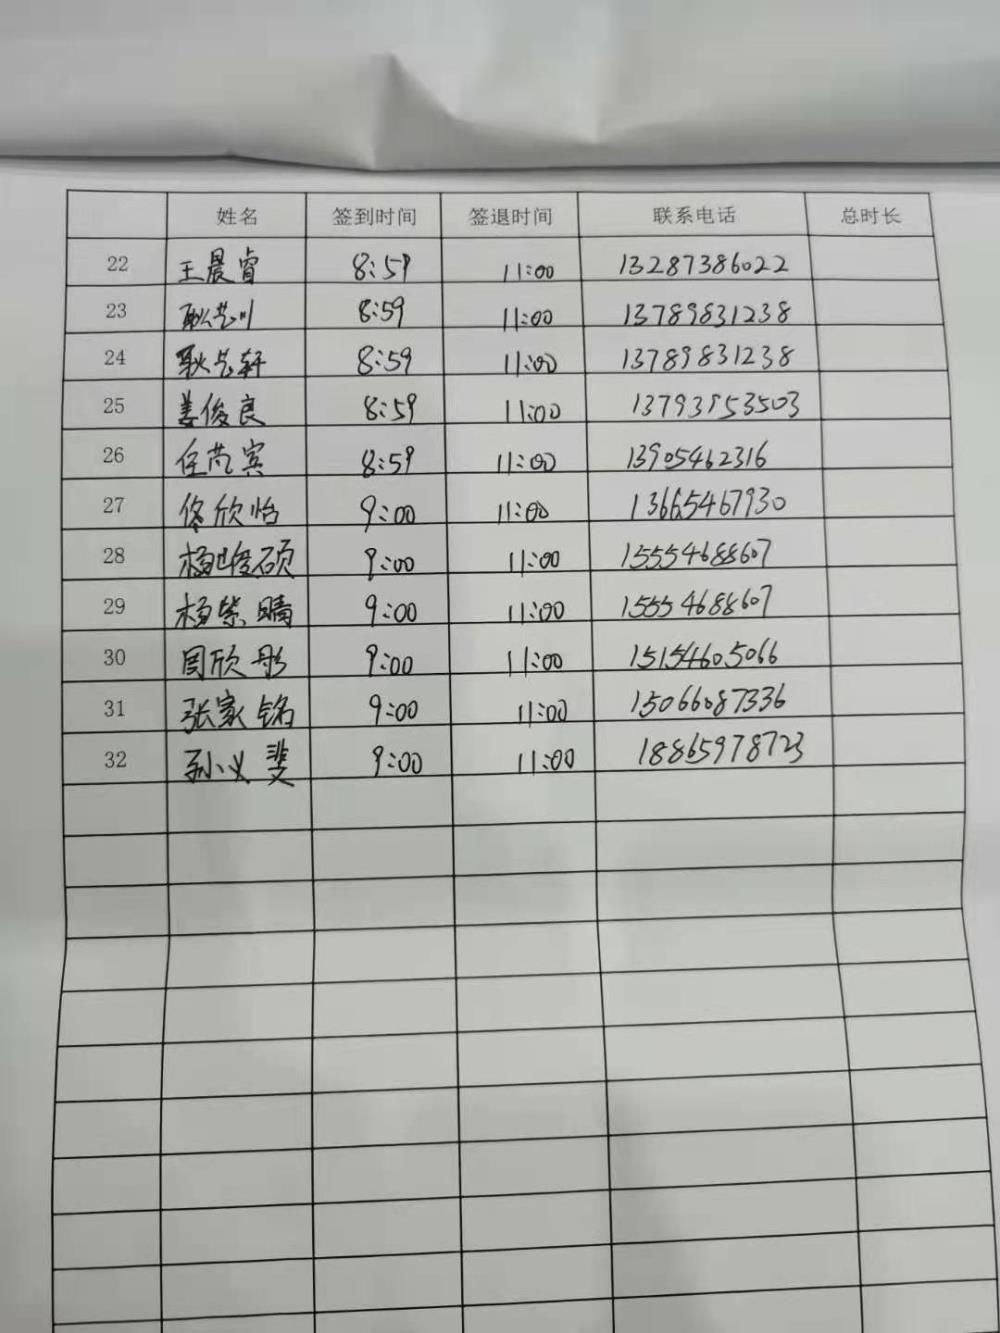 姓名 签到时间 签退时间 联系电话 总时长
22 王晨睿 8:59 11:00 13287386022
23 耿艺川 8:59 11:00 13789831238
24 耿艺轩 8:59 11:00 13789831238
25 姜俊良 8:59 11:00 13793953503
26 任芃宾 8:59 11:00 13905462316
27 佟欣怡 9:00 11:00 13665467930
28 杨峻硕 9:00 11:00 15554688607
29 杨紫晴 9:00 11:00 15554688607
30 周欣彤 9:00 11:00 15154605066
31 张家铭 9:00 11:00 15066087336
32 孙义斐 9:00 11:00 18865978723